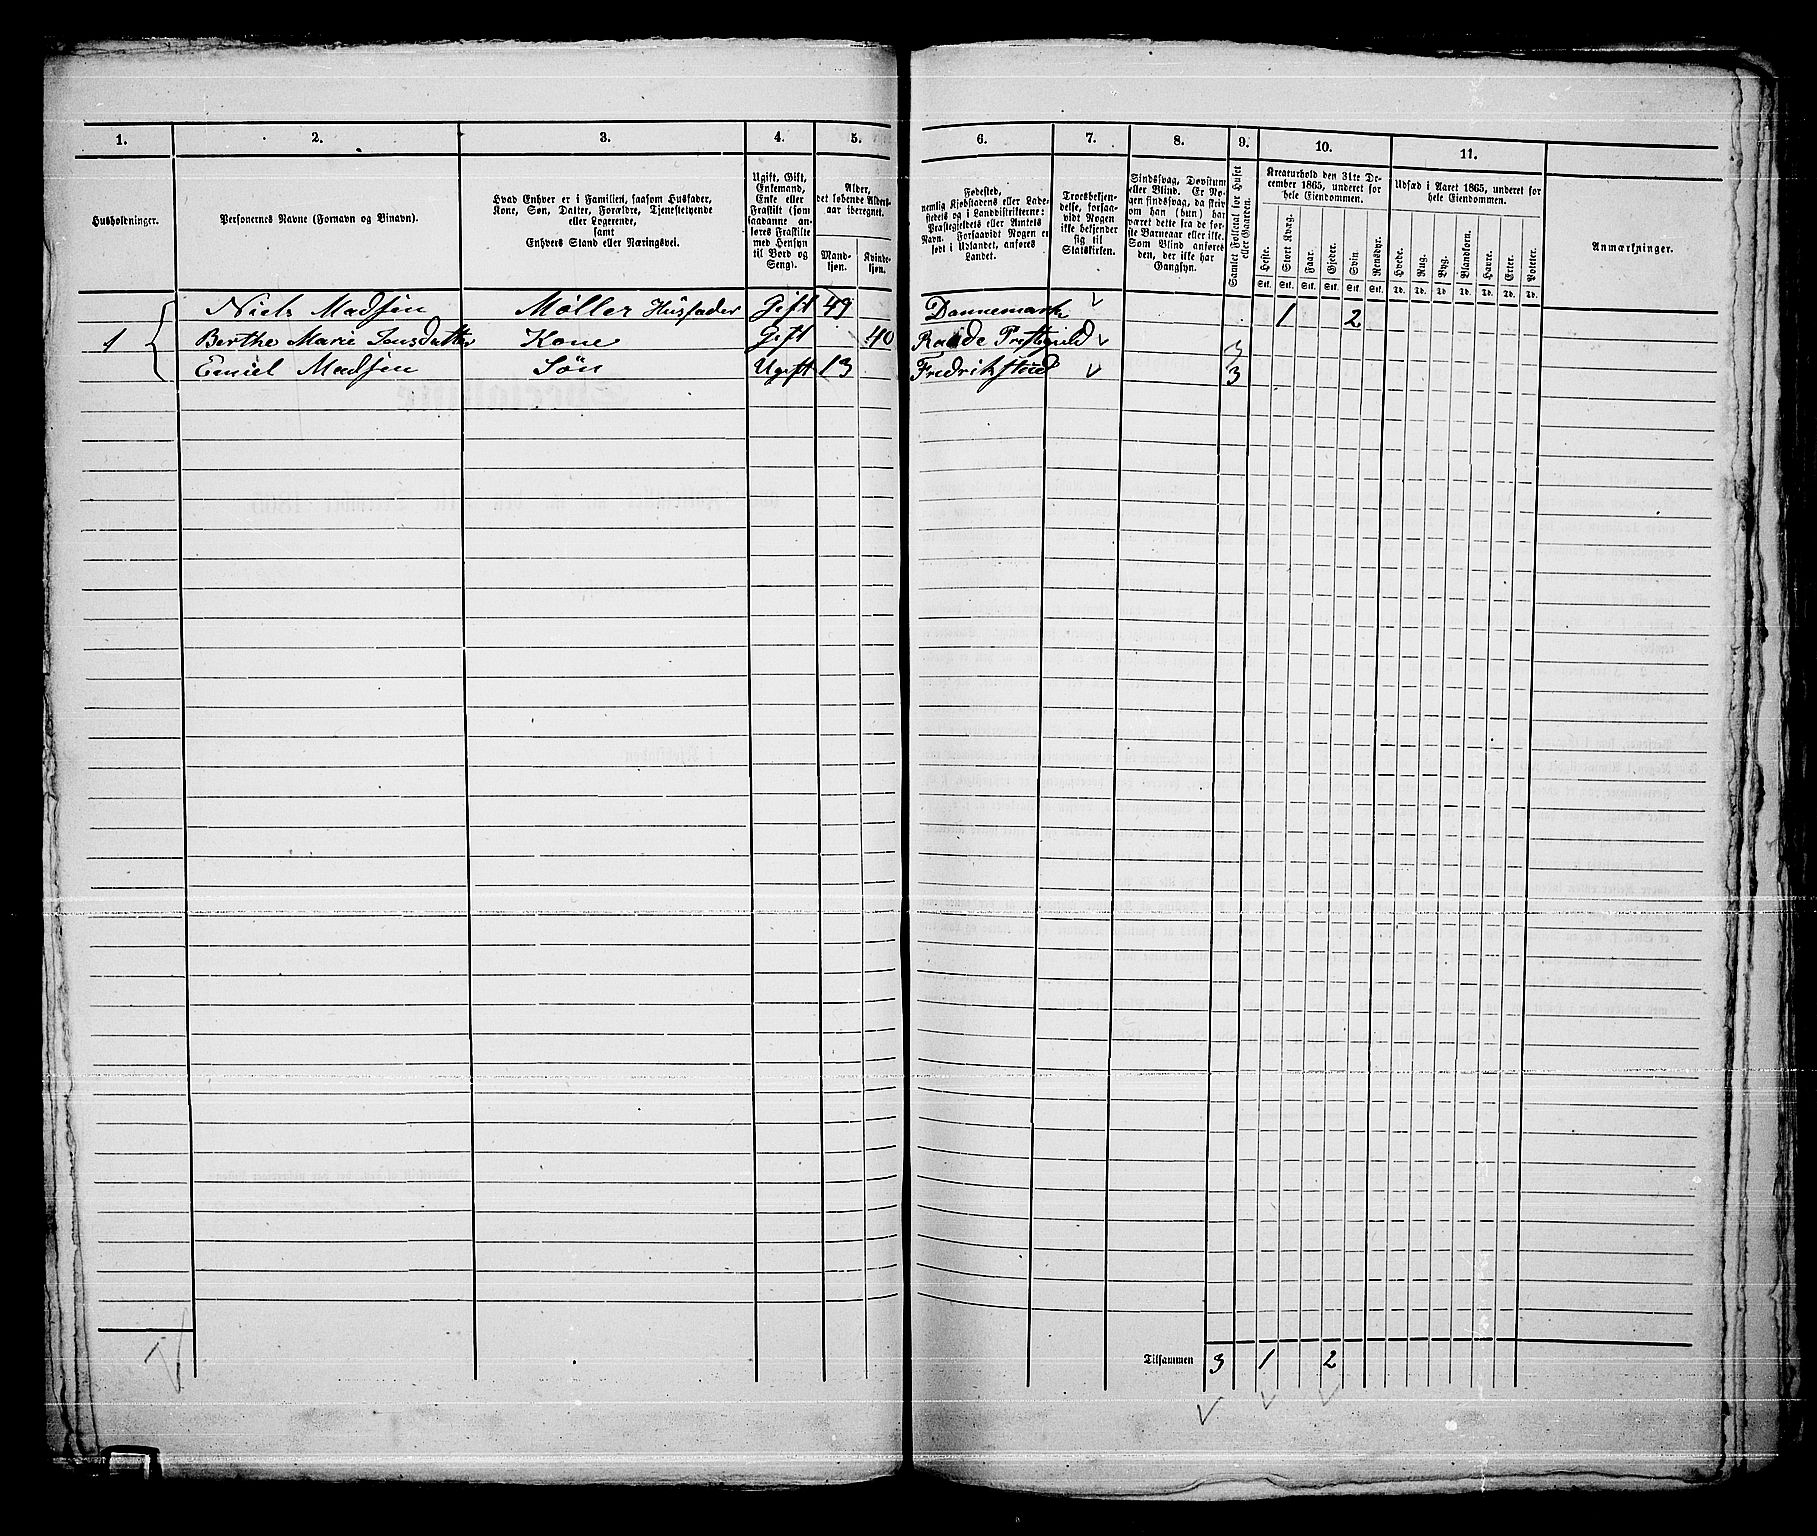 1. 2. 3. 4. 5. 6. 7. 8. 9. 10. 11.
Husholdninger.
Personernes Navne (Fornavn og Binavn).
Hvad Enhver er i Familien, saasom Husfader,
Kone, Søn, Datter, Forældre, Tjenestetyende
eller Logerende,
samt
Enhvers Stand eller Næringsvei.
Ugift, Gift,
Enkemand,
Enke eller
Fraskilt (som
saadanne an-
føres Fraskilte
med Hensyn
til Bord og
Seng).
Alder,
det løbende Alders-
aar iberegnet.
Mand-
kjøn.
Kvinde-
kjøn.
Fødested,
nemlig Kjøbstadens eller Lade-
stedets og i Landdistrikterne:
Præstegjeldets eller Amtets
Navn. Forsaavidt Nogen er
født i Udlandet, anføres
Landet.
Troesbekjen-
delse, forsaa-
vidt Nogen
ikke bekjender
sig til
Statskirken.
Sindssvag, Døvstum
eller Blind. Er No-
gen sindssvag, da skriv
om han (hun) har
været dette fra de før-
ste Barneaar eller ikke.
Som Blind anføres
den, der ikke har
Gangsyn.
Samlet Folketal for Huset
eller Gaarden.
Kreaturhold den 31te De-
cember 1865, underet for
hele Eiendommen.
Heste. Stort Kvæg. Faar. Gjeder. Svin. Rensdyr.
Stk. Stk. Stk. Stk. Stk. Stk.
Udsæd i Aaret 1865, underet for
hele Eiendommen.
Hvede. Rug. Byg. Blandkorn. Havre. Erter. Poteter.
Td. Td. Td. Td. Td. Td. Td.
Anmærkninger.
Niels Madsen Møller Husfader Gift 49 Dannemark 1 2
1 Berthe Marie Gift 40 Kone 3
Emiel Madsen Søn Ugift 13 Fredrikstad 3
Tilsammen 3 1 2